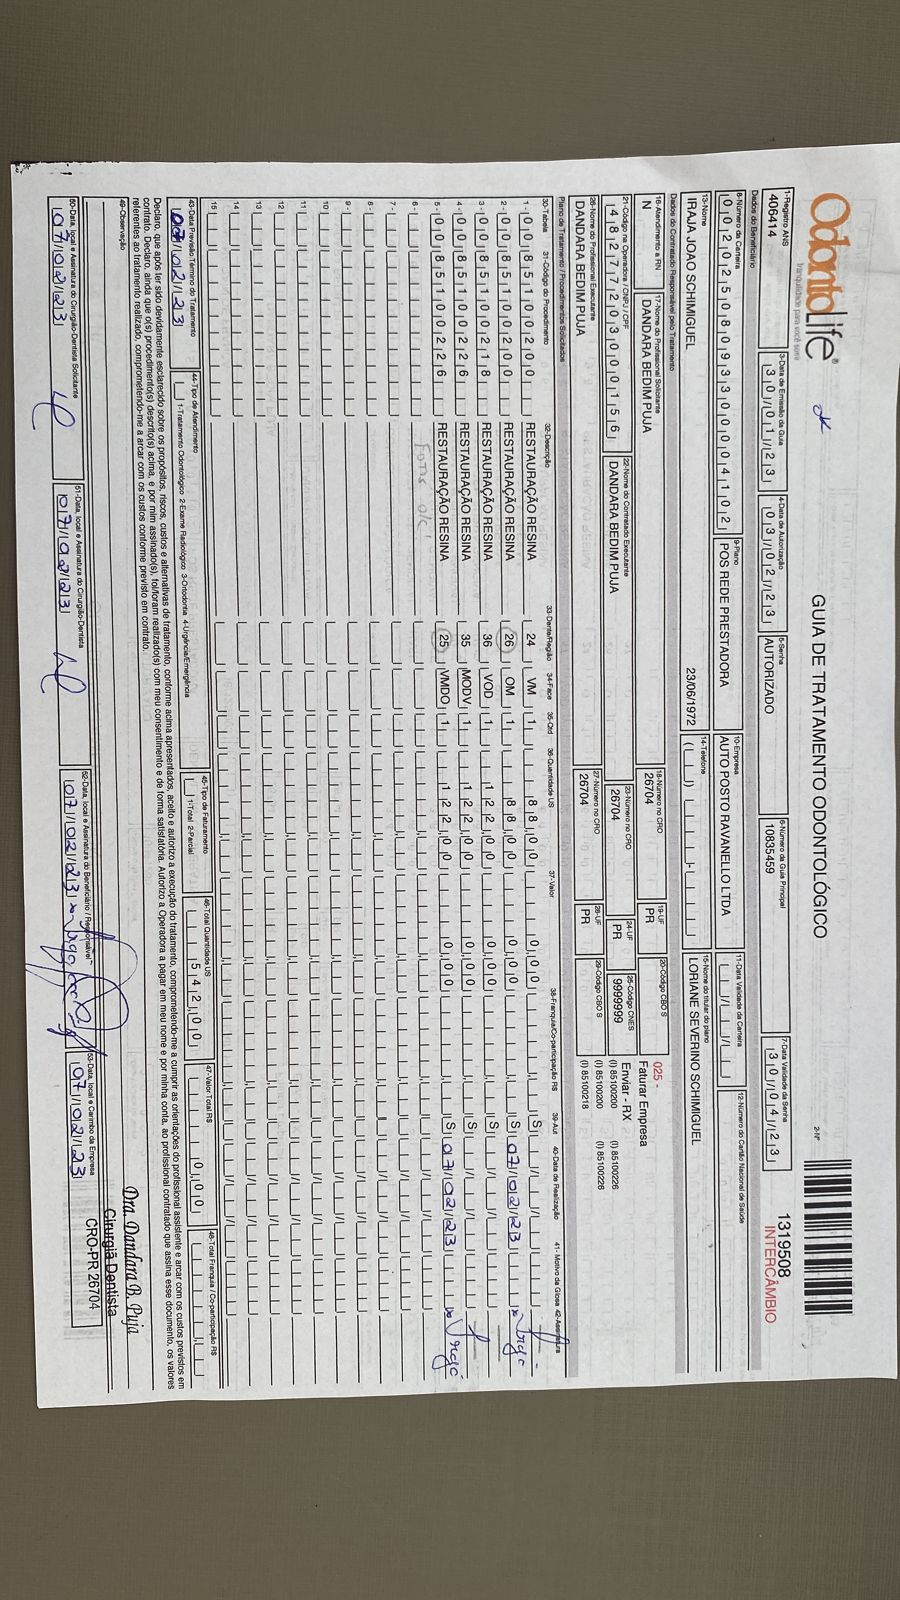 OdontoLife®
tranquilidade para você sorrir
GUIA DE TRATAMENTO ODONTOLÓGICO
2-Nº
1319508
INTERCÂMBIO
1-Registro ANS
406414
3-Data de Emissão da Guia
30/01/23
4-Data de Autorização
03/02/23
5-Senha
AUTORIZADO
6-Número da Guia Principal
10835459
7-Data Validade da Senha
30/04/23
Dados do Beneficiário
8-Número da Carteira
00202508093300004102
9-Plano
POS REDE PRESTADORA
10-Empresa
AUTO POSTO RAVANELLO LTDA
11-Data Validade da Carteira
12-Número do Cartão Nacional de Saúde
13-Nome
IRAJA JOAO SCHIMIGUEL
23/06/1972
14-Telefone
15-Nome do titular do plano
LORIANE SEVERINO SCHIMIGUEL
Dados do Contratado Responsável pelo Tratamento
16-Atendimento a RN
N
17-Nome do Profissional Solicitante
DANDARA BEDIM PUJA
18-Número no CRO
26704
19-UF
PR
20-Código CBO S
025 -
Faturar Empresa
21-Código na Operadora / CNPJ / CPF
48277203000156
22-Nome do Contratado Executante
DANDARA BEDIM PUJA
23-Número no CRO
26704
24-UF
PR
25-Código CNES
9999999
Enviar - RX
(I) 85100200 (I) 85100226
26-Nome do Profissional Executante
DANDARA BEDIM PUJA
27-Número no CRO
26704
28-UF
PR
29-Código CBO S
(I) 85100200 (I) 85100226
(I) 85100218
Plano de Tratamento / Procedimentos Solicitados
30-Tabela 31-Código do Procedimento 32-Descrição 33-Dente/Região 34-Face 35-Qtd 36-Quantidade US 37-Valor 38-Franquia/Co-participação R$ 39-Aut 40-Data de Realização 41- Motivo da Glosa 42-Assinatura
1- 00 85100200 RESTAURAÇÃO RESINA 24 VM 1 88,00 0,00 S
2- 00 85100200 RESTAURAÇÃO RESINA 26 OM 1 88,00 0,00 S 07/02/23
3- 00 85100218 RESTAURAÇÃO RESINA 36 VOD 1 122,00 0,00 S
4- 00 85100226 RESTAURAÇÃO RESINA 35 MODV 1 122,00 0,00 S
5- 00 85100226 RESTAURAÇÃO RESINA 25 VMDO 1 122,00 0,00 S 07/02/23
6-
7-
8-
9-
10
11
12
13
14
15
43-Data Previsão Término do Tratamento
07/02/23
44-Tipo de Atendimento
1-Tratamento Odontológico 2-Exame Radiológico 3-Ortodontia 4-Urgência/Emergência
45-Tipo de Faturamento
1-Total 2-Parcial
46-Total Quantidade US
542,00
47-Valor Total R$
0,00
48-Total Franquia / Co-participação R$
Declaro, que após ter sido devidamente esclarecido sobre os propósitos, riscos, custos e alternativas de tratamento, conforme acima apresentados, aceito e autorizo a execução do tratamento, comprometendo-me a cumprir as orientações do profissional assistente e arcar com os custos previstos em
contrato. Declaro, ainda que o(s) procedimento(s) descrito(s) acima, e por mim assinado(s), foi/foram realizado(s) com meu consentimento e de forma satisfatória. Autorizo a Operadora a pagar em meu nome e por minha conta, ao profissional contratado que assina esse documento, os valores
referentes ao tratamento realizado, comprometendo-me a arcar com os custos conforme previsto em contrato.
49-Observação
Dra. Dandara B. Puja
Cirurgiã Dentista
CRO-PR 26704
50-Data, local e Assinatura do Cirurgião-Dentista Solicitante
07/02/23
51-Data, local e Assinatura do Cirurgião-Dentista
07/02/23
52-Data, local e Assinatura do Beneficiário / Responsável
07/02/23
53-Data, local e Carimbo da Empresa
07/02/23